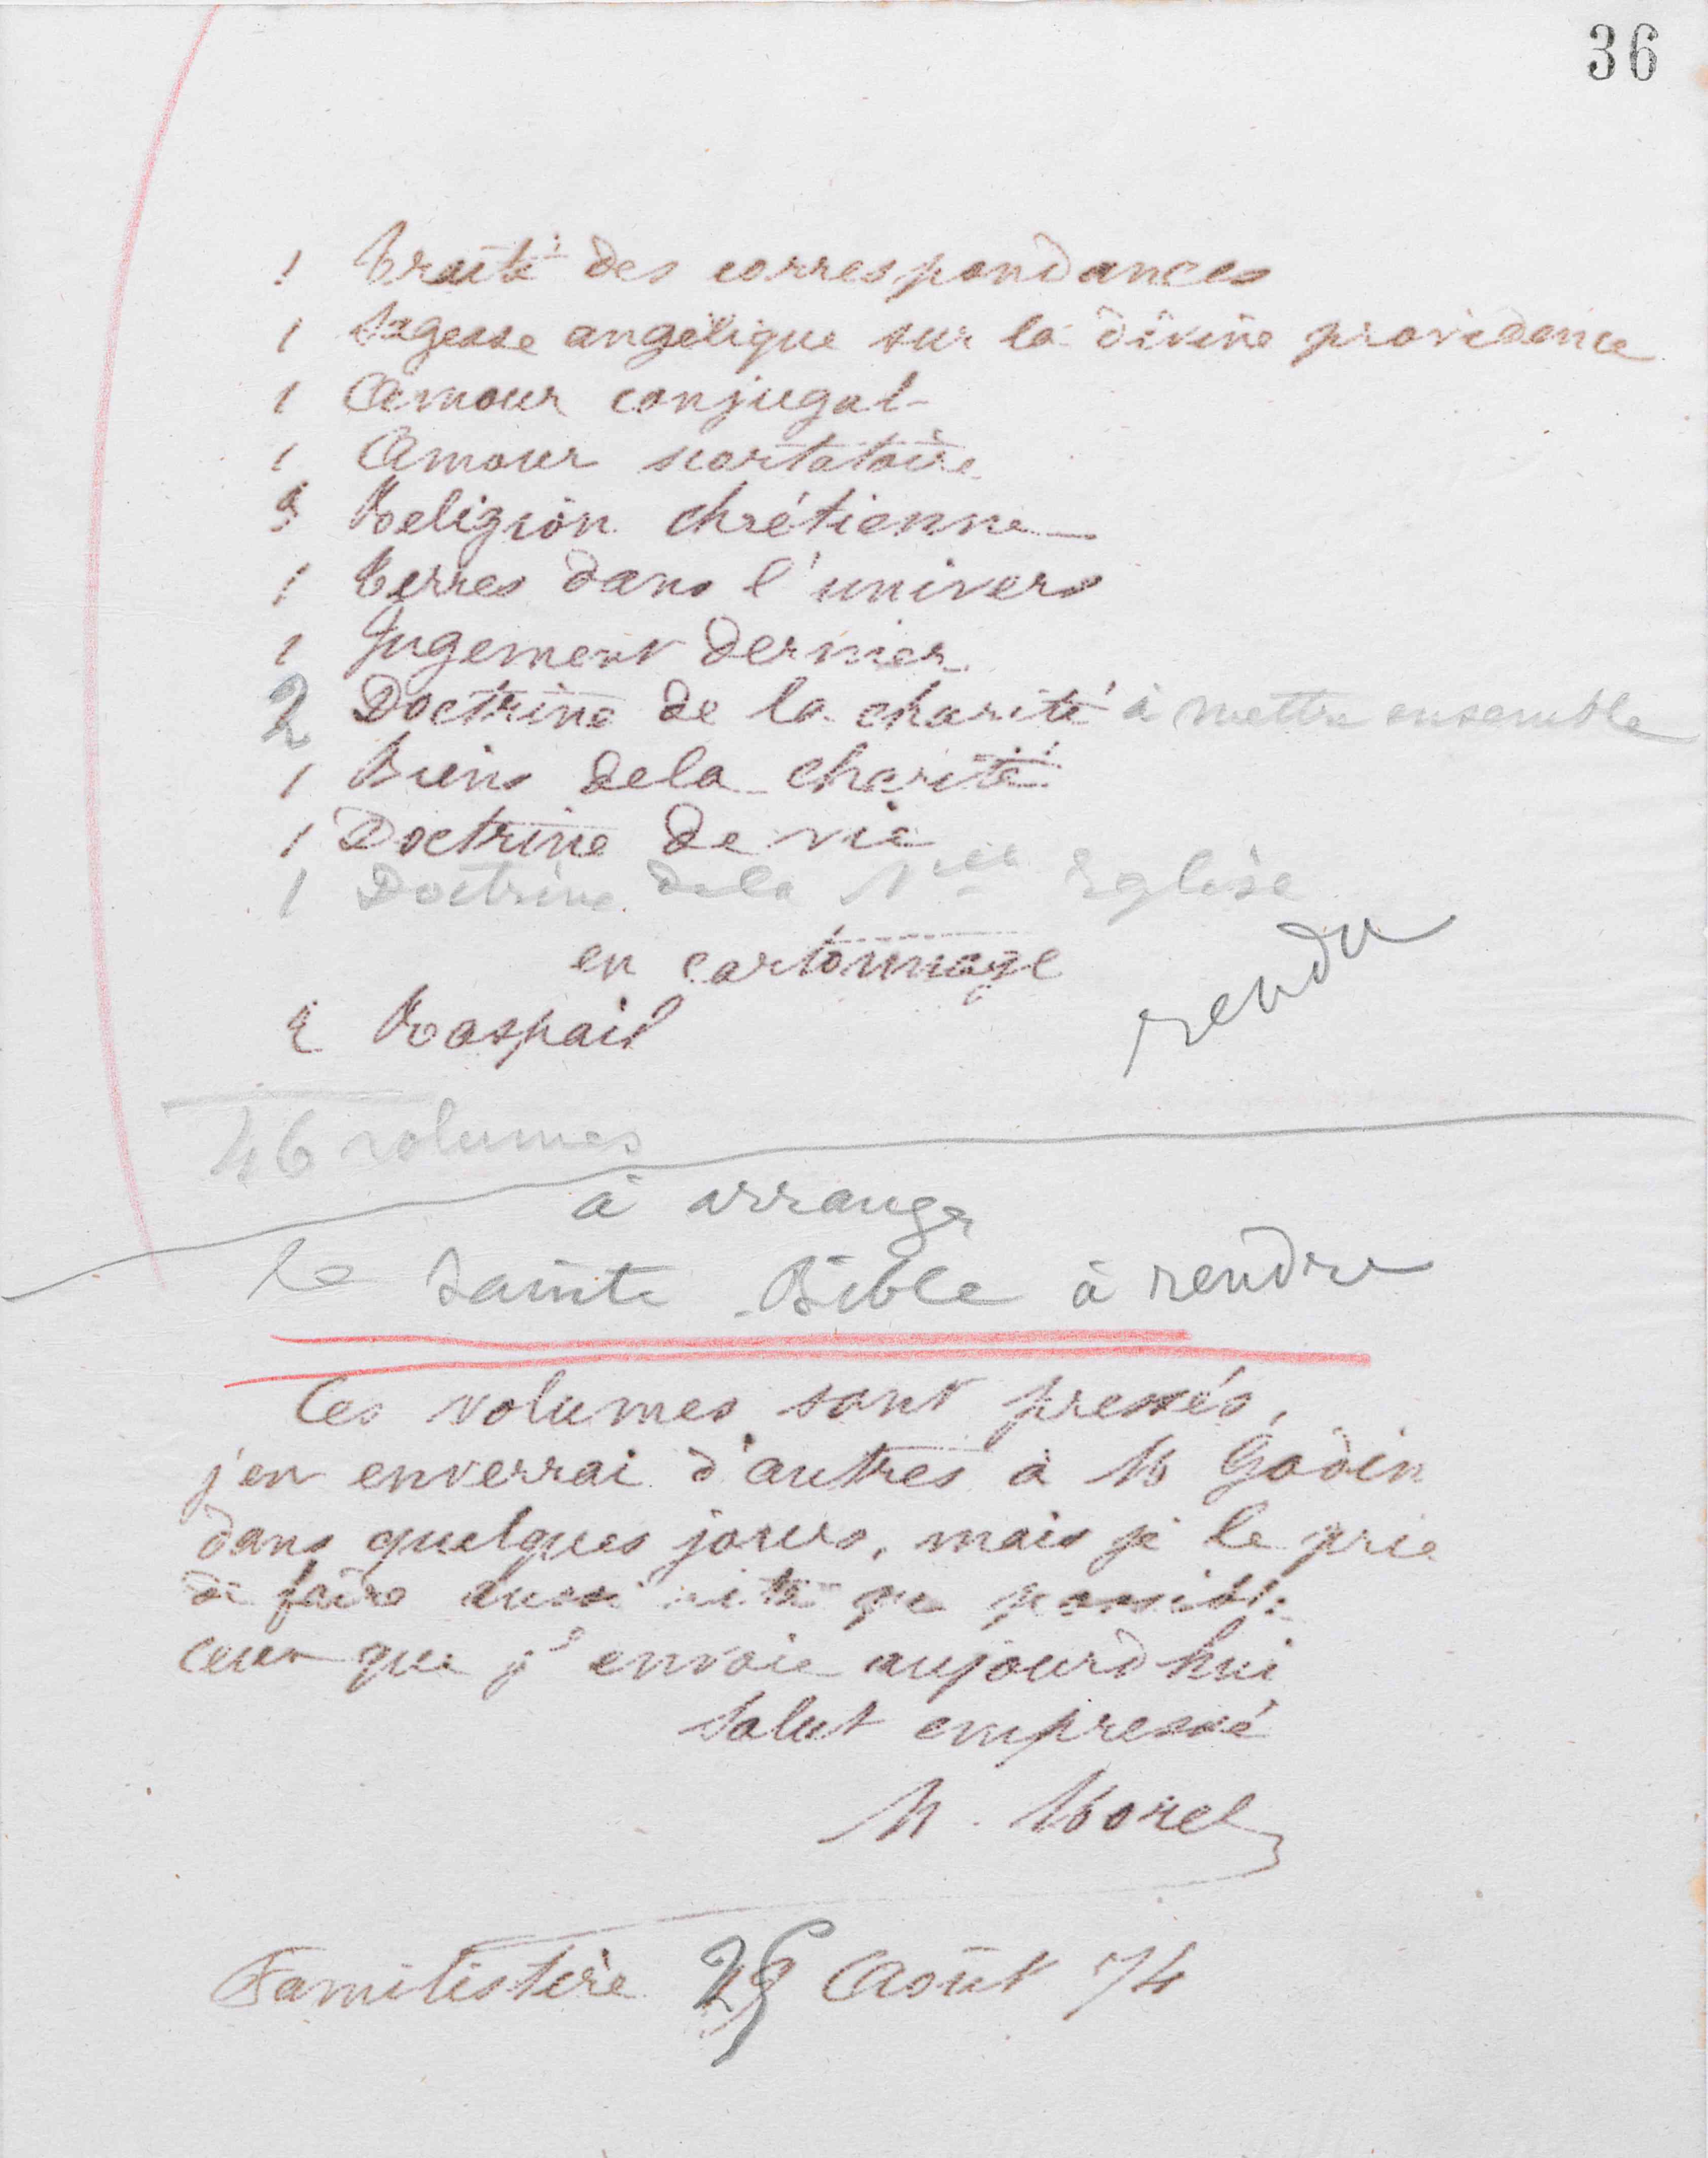 36
1 Traité des correspondances
1 Sagesse angélique sur la divine providence
1 Amour conjugal
1 Amour scortatoire
3 Religion chrétienne
1 Terres dans l'univers
1 Jugement dernier
2 Doctrine de la charité à mettre ensemble
1 Biens de la charité
1 Doctrine de vie
1 Doctrine de la Nlle Eglise
en cartonnage
2 Raspail
rendu
46 volumes
à arranger
la Sainte Bible à rendre
Ces volumes sont pressés,
j'en enverrai d'autres à M Godin
dans quelques jours, mais je le prie
de faire aussi vite que possible
ceux que j'envoie aujourd'hui
Salut empressé
M. Morel
Familistère 25 Août 74